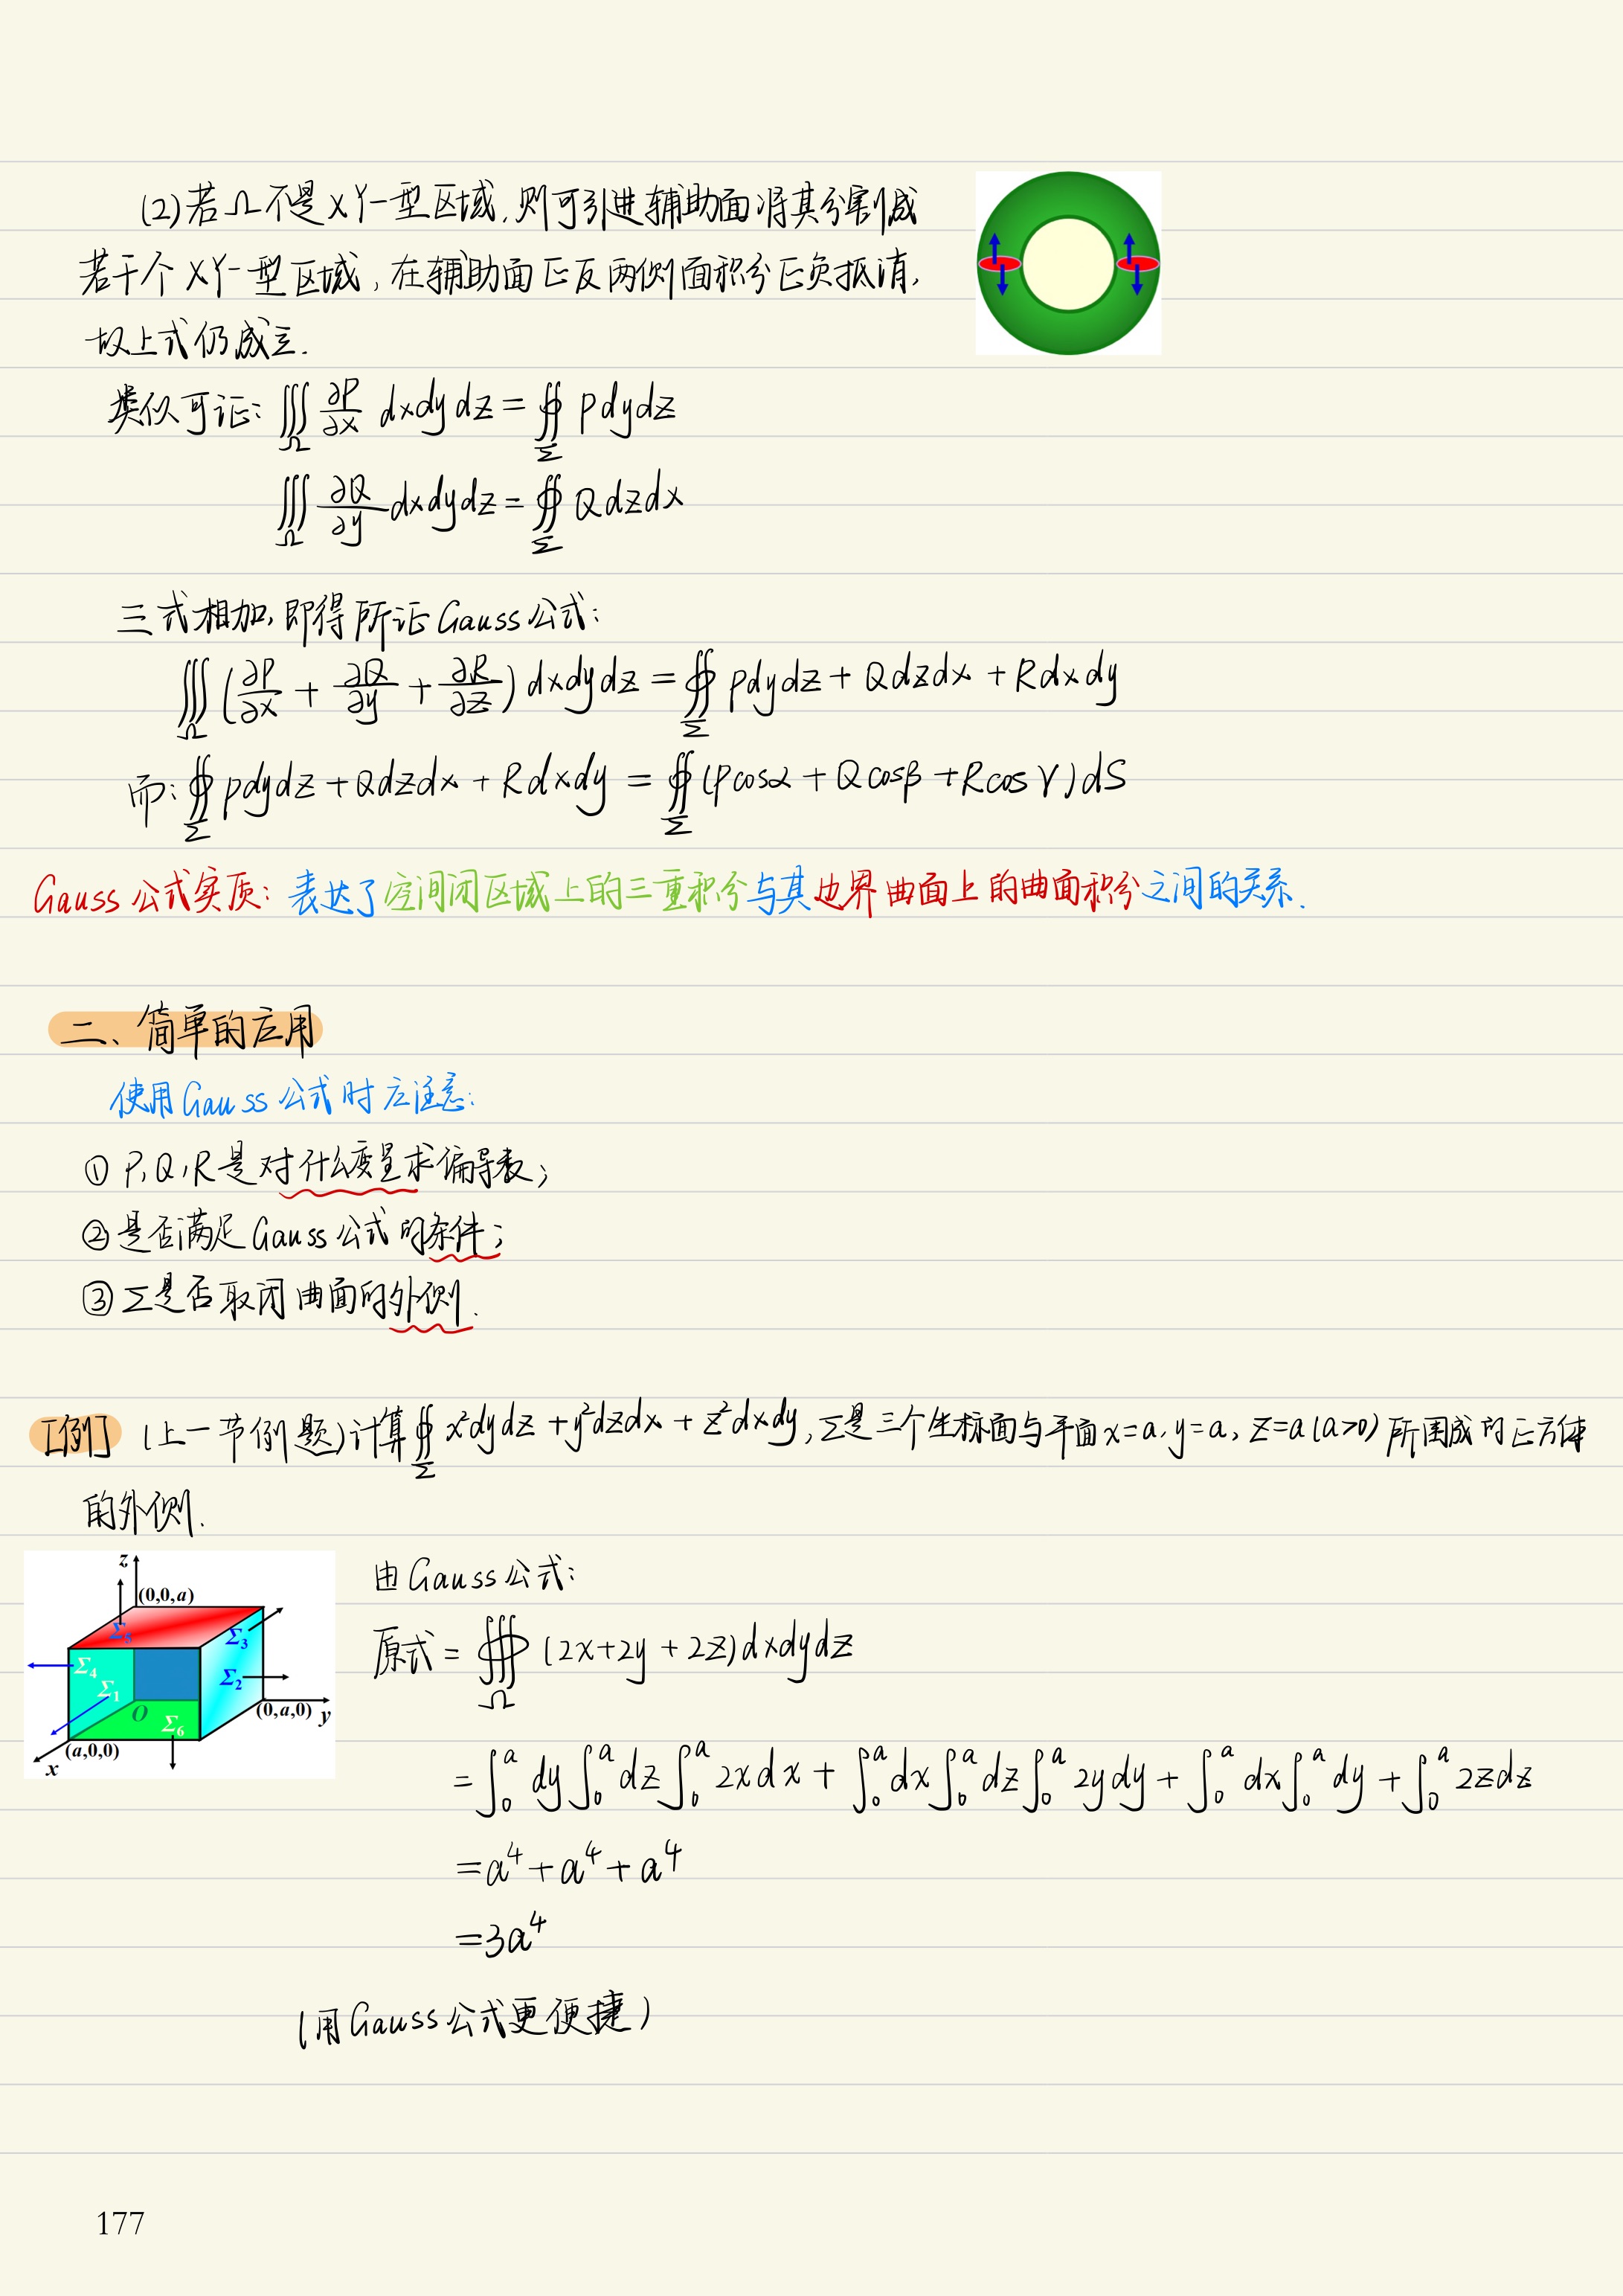 (2)若Ω不是XY-型区域,则可引进辅助面将其分割成
若干个XY-型区域,在辅助面正反两侧面积分正负抵消,
故上式仍成立.
类似可证: ∭_Ω ∂P/∂x dxdydz = ∯_Σ Pdydz
∭_Ω ∂Q/∂y dxdydz = ∯_Σ Qdzdx
三式相加,即得所证Gauss公式:
∭_Ω (∂P/∂x + ∂Q/∂y + ∂R/∂z) dxdydz = ∯_Σ Pdydz + Qdzdx + Rdxdy
而: ∯_Σ Pdydz + Qdzdx + Rdxdy = ∯_Σ (Pcosα + Qcosβ + Rcosγ)dS
Gauss公式实质: 表达了空间闭区域上的三重积分与其边界曲面上的曲面积分之间的关系.
二、简单的应用
使用Gauss公式时应注意:
① P,Q,R是对什么变量求偏导数;
②是否满足Gauss公式的条件;
③Σ是否取闭曲面的外侧.
[例] (上一节例题)计算∯_Σ x²dydz + y²dzdx + z²dxdy, Σ是三个坐标面与平面x=a, y=a, z=a(a>0)所围成的正方体
的外侧.
z
(0,0,a)
Σ₅
Σ₃
Σ₄
Σ₂
Σ₁
O
Σ₆
(0,a,0) y
(a,0,0)
x
由Gauss公式:
原式 = ∰_Ω (2x+2y+2z)dxdydz
= ∫₀ᵃ dy∫₀ᵃ dz∫₀ᵃ 2xdx + ∫₀ᵃ dx∫₀ᵃ dz∫₀ᵃ 2ydy + ∫₀ᵃ dx∫₀ᵃ dy + ∫₀ᵃ 2zdz
= a⁴ + a⁴ + a⁴
= 3a⁴
(用Gauss公式更便捷)
177